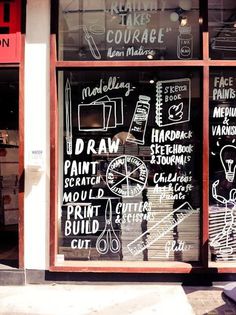 CREATIVITY
"TAKES
COURAGE"
Henri Matisse
Modelling
SKETCH
BOOK
DRAW
PAINT
SCRATCH
MOULD
PRINT
BUILD
CUT
HARDBACK
SKETCHBOOK
& JOURNALS
CUTTERS
& SCISSORS
Children's
Art & Craft
Paints
Glitter
FACE
PAINTS
MEDIUM
&
VARNISH